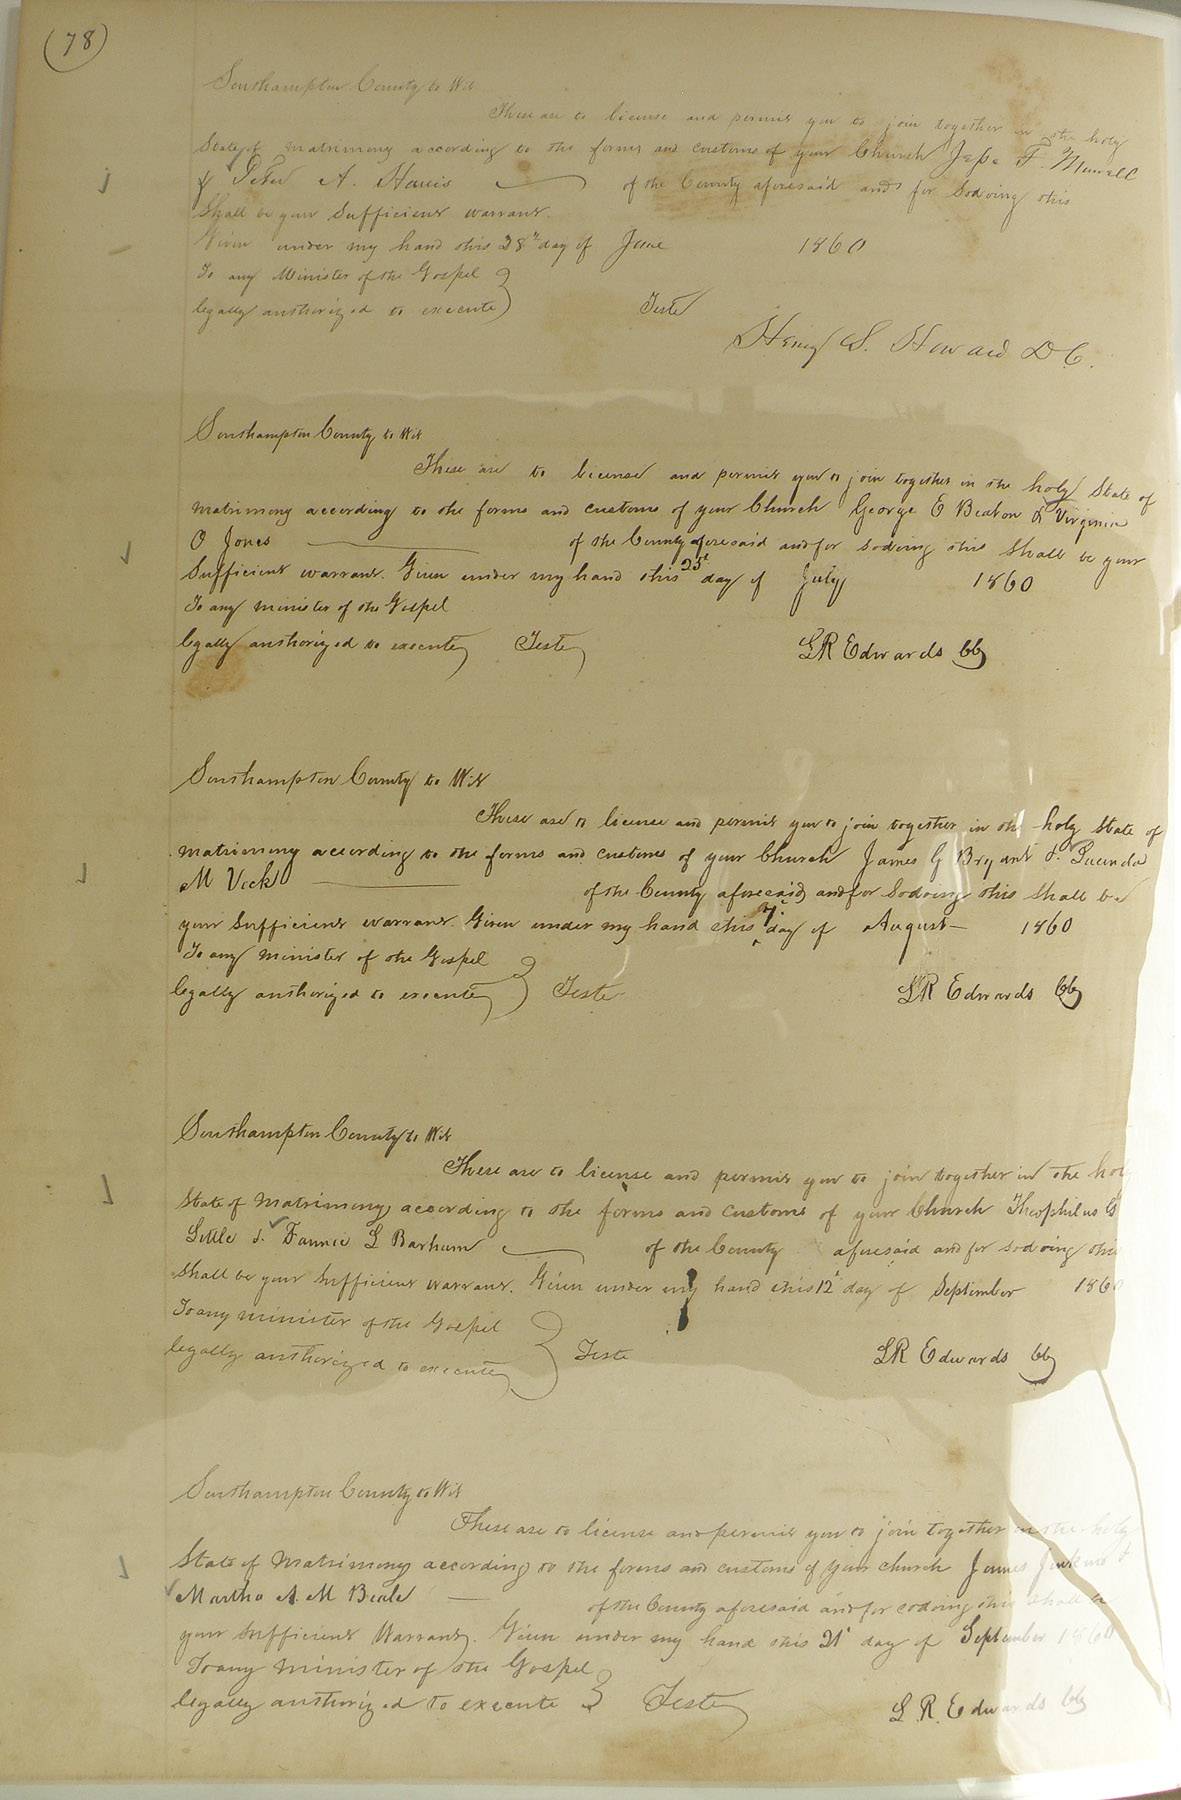 (78)
Southampton County to Wit
These are to license and permit you to join together in the holy
State of matrimony according to the forms and customs of your Church F.
& Peter A. of the County aforesaid and for Sodoing this
Shall be your Sufficient warrant.
Given under my hand this 28th day of June 1860
To any Minister of the Gospel
legally authorized to execute Teste
Henry S. Howard D C.
Southampton County to Wit
These are to license and permit you to join together in the holy State of
matrimony according to the forms and customs of your Church George E Beaton & Virginia
O Jones of the County aforesaid and for Sodoing this Shall be your
Sufficient warrant. Given under my hand this 25t day of July 1860
To any minister of the Gospel
legally authorized to execute Teste LR Edwards
Southampton County to Wit
These are to license and permit you to join together in the holy State of
matrimony according to the forms and customs of your Church James G Bryant & Lucinda
M Vick of the County aforesaid and for Sodoing this Shall be
your Sufficient warrant. Given under my hand this 7 day of August 1860
To any minister of the Gospel
legally authorized to execute Teste LR Edwards
Southampton County to Wit
These are to license and permit you to join together in the
State of Matrimony according to the forms and customs of your Church Theophilus
& Fannie L Barham of the County aforesaid and for sodoing this
Shall be your Sufficient warrant. Given under my hand this 12 day of September
To any minister of the Gospel
legally authorized to execute Teste LR Edwards
Southampton County to Wit
These are to license and permit you to join together in the holy
State of Matrimony according to the forms and customs of your church James &
Martha A. M Beale of the County aforesaid and for sodoing this Shall
your Sufficient Warrant. Given under my hand this 21 day of September 1860
To any minister of the Gospel
legally authorized to execute Teste L. R. Edwards